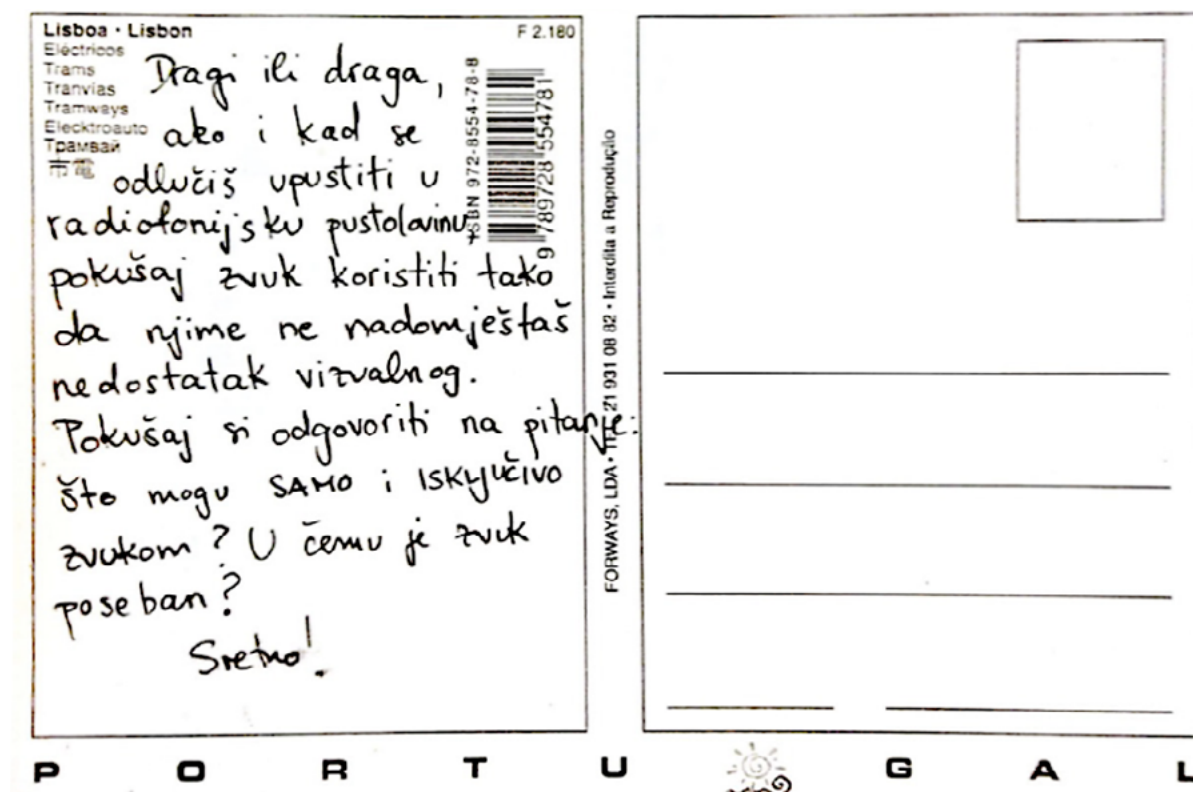 Lisboa · Lisbon
F 2.180
Eléctricos
Trams
Tranvías
Tramways
Elecktroauto
Трамвай
市電
Dragi ili draga,
ako i kad se
odlučiš upustiti u
radiofonijsku pustolovinu,
pokušaj zvuk koristiti tako
da njime ne nadomještaš
nedostatak vizualnog.
Pokušaj si odgovoriti na pitanje:
što mogu SAMO i ISKLJUČIVO
zvukom? U čemu je zvuk
poseban?
Sretno!
ISBN 972-8554-78-8
9 789728 554781
FORWAYS, LDA · 21 931 08 82 · Interdita a Reprodução
PORTUGAL